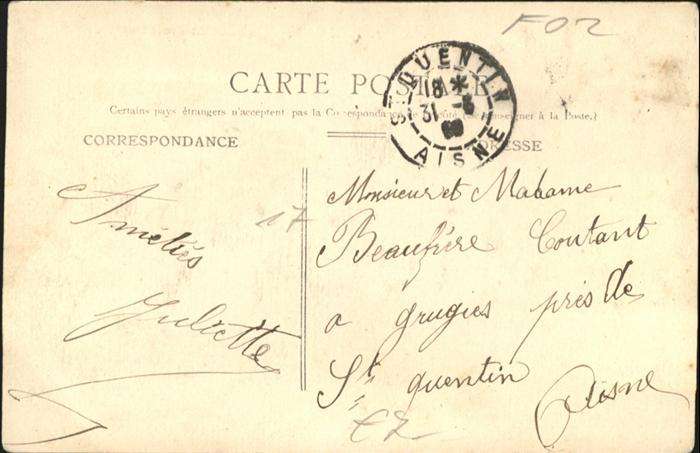 F02
CARTE POSTALE
Certains pays étrangers n'acceptent pas la Correspondance se renseigner à la Poste.)
CORRESPONDANCE
ADRESSE
ST QUENTIN
18 *
31 - 8
AISNE
17
Amitiés
Juliette
Monsieur et Madame
Beaufrère Coutant
a grugies près de
St quentin Aisne
€2-